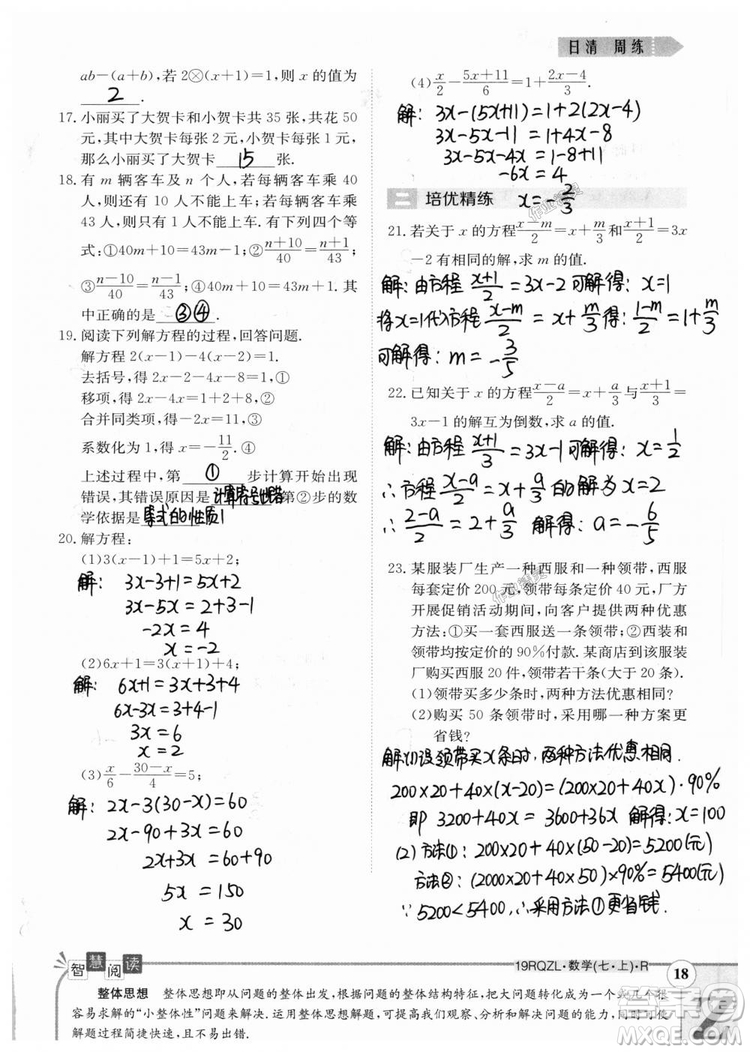 日清 周练
ab-(a+b),若 2⊗(x+1)=1,则 x 的值为
2 .
17. 小丽买了大贺卡和小贺卡共 35 张,共花 50
元,其中大贺卡每张 2 元,小贺卡每张 1 元,
那么小丽买了大贺卡 15 张.
18. 有 m 辆客车及 n 个人,若每辆客车乘 40
人,则还有 10 人不能上车,若每辆客车乘
43 人,则只有 1 人不能上车,有下列四个等
式:①40m+10=43m-1;②(n+10)/40=(n+1)/43;
③(n-10)/40=(n-1)/43;④40m+10=43m+1. 其
中正确的是 ③④ .
19. 阅读下列解方程的过程,回答问题.
解方程 2(x-1)-4(x-2)=1.
去括号,得 2x-2-4x-8=1,①
移项,得 2x-4x=1+2+8,②
合并同类项,得-2x=11,③
系数化为 1,得 x=-11/2. ④
上述过程中,第 ① 步计算开始出现
错误,其错误原因是 ;第②步的数
学依据是 等式的性质1
20. 解方程:
(1)3(x-1)+1=5x+2;
解: 3x-3+1=5x+2
3x-5x=4
-2x=4
x=-2
(2)6x+1=3(x+1)+4;
解: 6x+1=3x+3+4
6x-3x=3+4-1
3x=6
x=2
(3)x/6-(30-x)/4=5;
解: 2x-3(30-x)=60
2x-90+3x=60
2x+3x=60+90
5x=150
x=30
(4)x/2-(5x+11)/6=1+(2x-4)/3.
解: 3x-(5x+11)=1+2(2x-4)
3x-5x-11=1+4x-8
-6x=4
x=-2/3
二 培优精练
21. 若关于 x 的方程(x-m)/2=x+m/3和(x+1)/2=3x
-2 有相同的解,求 m 的值.
解:由方程(x+1)/2=3x-2可解得:x=1
将x=1代入方程(x-m)/2=x+m/3得:(1-m)/2=1+m/3
可解得:m=-3/5
22. 已知关于 x 的方程(x-a)/2=x+a/3与(x+1)/3=
3x-1 的解互为倒数,求 a 的值.
解:由方程(x+1)/3=3x-1可解得:x=1/2
∴方程(x-a)/2=x+a/3的解为x=2
∴(2-a)/2=2+a/3 解得:a=-6/5
23. 某服装厂生产一种西服和一种领带,西服
每套定价 200 元,领带每条定价 40 元,厂方
开展促销活动期间,向客户提供两种优惠
方法:①买一套西服送一条领带;②西服和领
带均按定价的 90%付款. 某商店到该服装
厂购买西服 20 件,领带若干条(大于 20 条).
(1)领带买多少条时,两种方法优惠一样?
(2)购买 50 条领带时,采用哪一种方案更
省钱?
解:(1)设领带买x条时,两种方法优惠一样.
200×20+40×(x-20)=(200×20+40x)·90%
即 3200+40x=3600+36x 解得:x=100
(2)方法①:200×20+40×(50-20)=5200(元)
方法②:(200×20+40×50)×90%=5400(元)
∵5200<5400 ∴采用方法①更省钱.
智慧阅读
19RQZL·数学(七·上)·R
18
整体思想 整体思想即从问题的整体出发,根据问题的整体结构特征,把大问题化为一个或几个很
容易求解的“小整体性”问题来解决. 运用整体思想解题,可提高我们观察、分析和解决问题的能力,使
解题过程简捷快速,且不易出错.